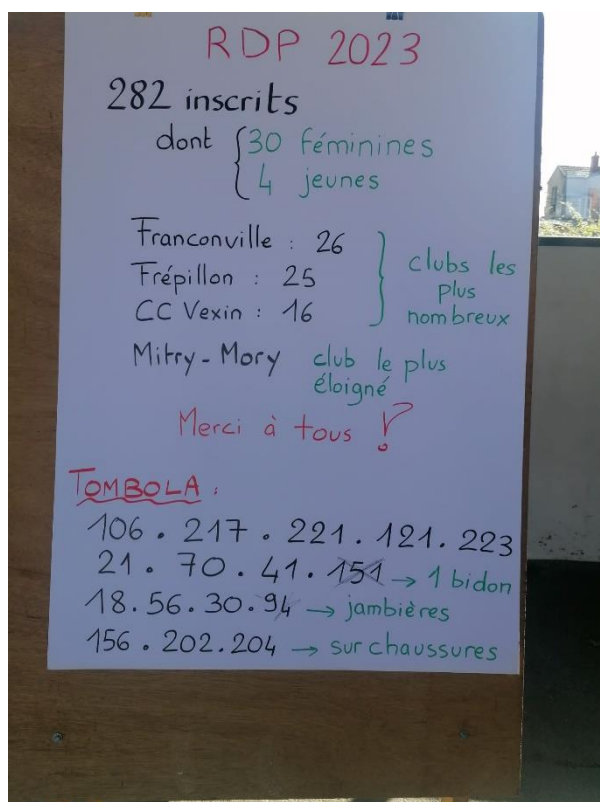 RDP 2023
282 inscrits
dont { 30 féminines
4 jeunes
Franconville : 26
Frépillon : 25
CC Vexin : 16
} clubs les
plus
nombreux
Mitry-Mory club le plus
éloigné
Merci à tous !
TOMBOLA :
106 . 217 . 221 . 121 . 223
21 . 70 . 41 . 151 → 1 bidon
18 . 56 . 30 . 94 → jambières
156 . 202 . 204 → sur chaussures